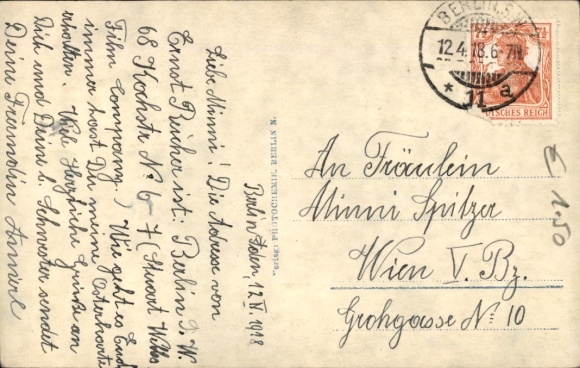 Berlin den, 12. IV. 1918
Liebe Minni! Die Adresse von
Ernst Reicher ist: Berlin S. W.
68 Kochstr. No 6-7 (Stuart Webbs
Film Company.) Wie geht es Euch
immer hast Du meine Osterkarte
erhalten. Viele Herzliche Grüsse an
Dich und Deine l. Schwester sendet
Deine Freundin
Verlag: PHOTOCHEMIE, BERLIN N.
BERLIN S.W.
12.4.18.6-7N.
* 11 a
7½ 7½
DEUTSCHES REICH
An Fräulein
Minni Spitzer
Wien V. Bz.
Grohgasse No 10
€ 1.50